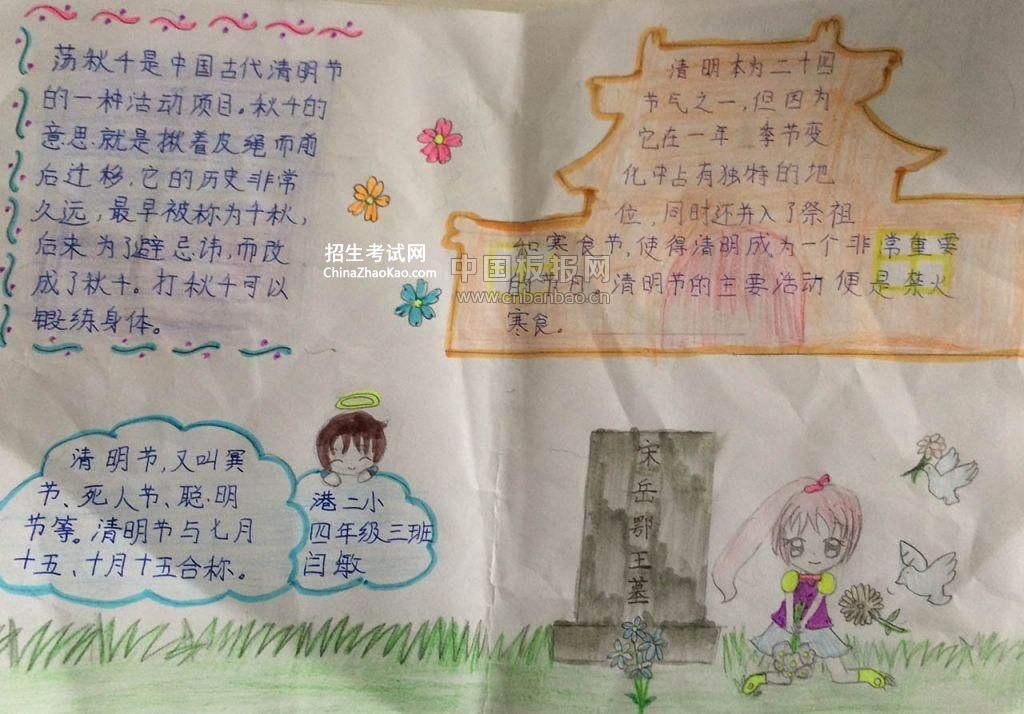 荡秋千是中国古代清明节
的一种活动项目。秋千的
意思就是揪着皮绳而前
后迁移，它的历史非常
久远，最早被称为千秋，
后来为了避忌讳，而改
成了秋千。打秋千可以
锻练身体。
清明本为二十四
节气之一，但因为
它在一年 季节变
化中占有独特的地
位，同时还并入了祭祖
和寒食节，使得清明成为一个非常重要
的节日。清明节的主要活动便是禁火
寒食。
招生考试网
ChinaZhaoKao.com
中国板报网
www.cnbanbao.cn
清明节，又叫冥
节、死人节、聪明
节等。清明节与七月
十五、十月十五合称。
港二小
四年级三班
闫敏
宋岳鄂王墓